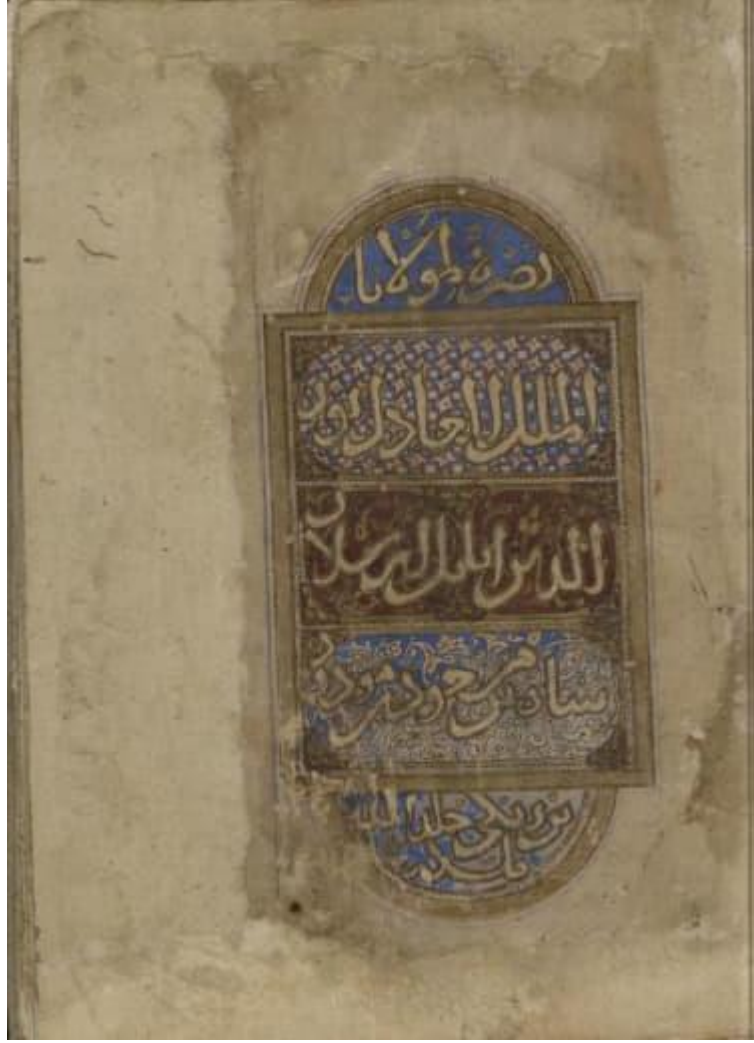 نصرة لمولانا
الملك العادل نور
الدين ابى الـ ارسلان
شاه بن مسعود بن مودود
بن زنكى خلد الله
ملكه